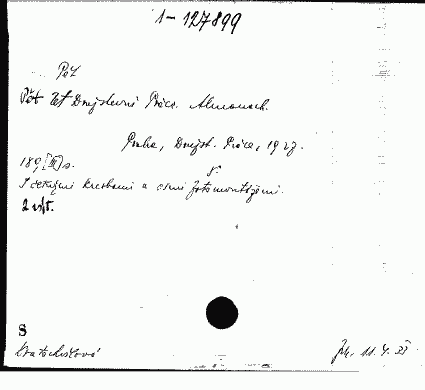 1-127899
Pět
Pět let Družstevní Práce. Almanach.
Praha, Družst. Práce, 1927.
189, [III] s.
8°.
S četnými kresbami a osmi fotomontážemi.
2 výt.
S
Kratochvílová